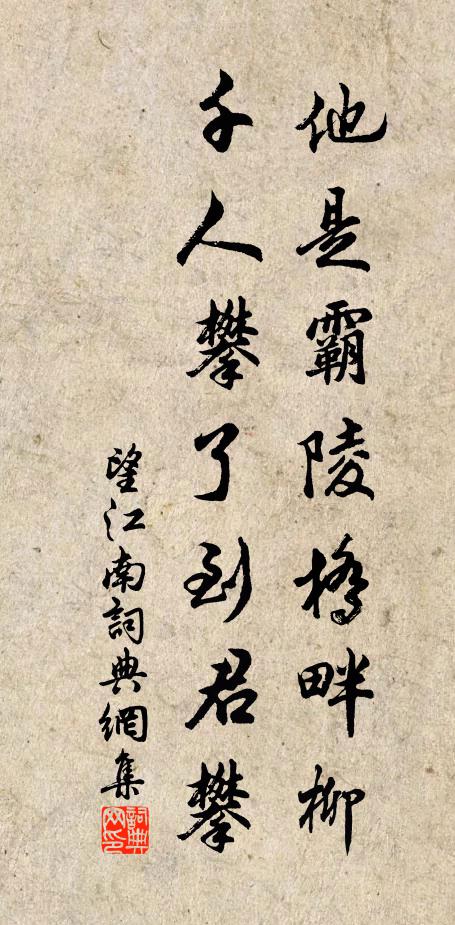 他是霸陵橋畔柳
千人攀了到君攀
望江南詞典網集
詞典网印